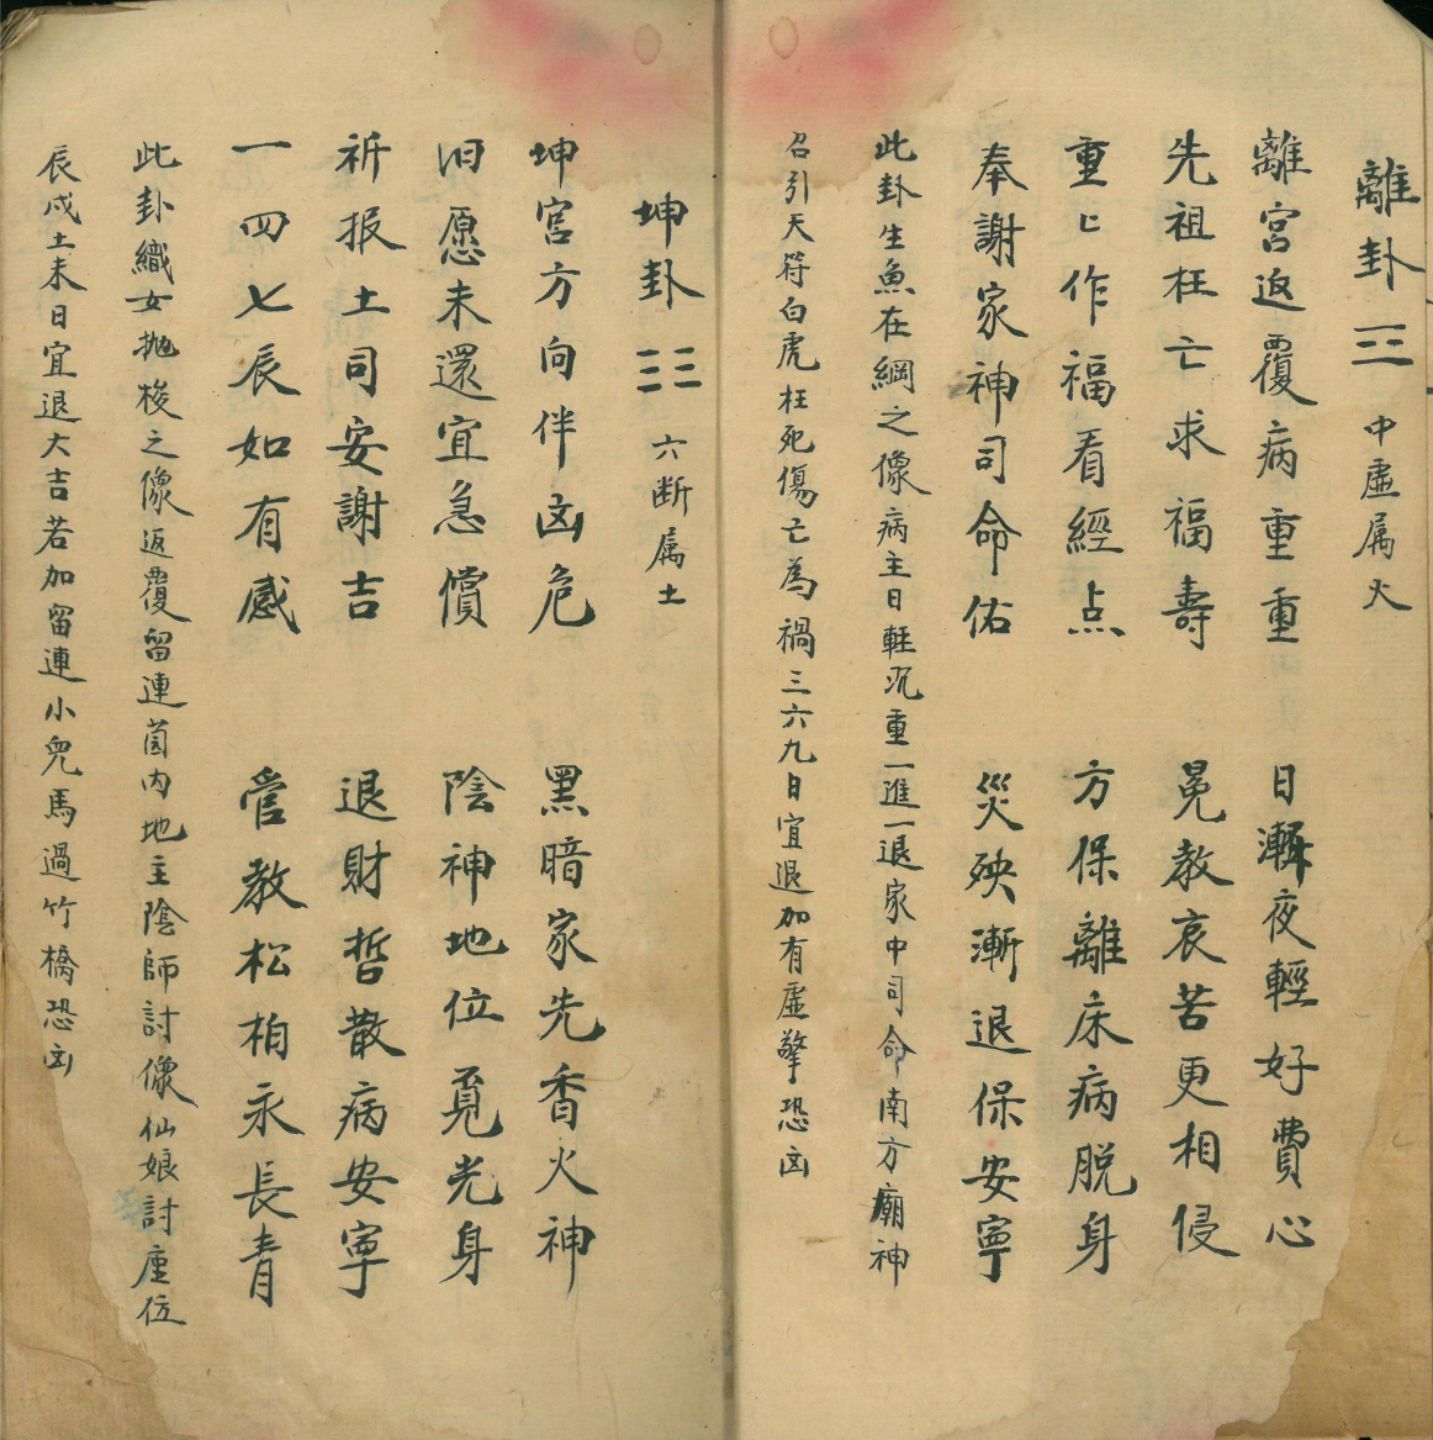 離卦☲ 中虛属火
離宮返覆病重重 日漸夜輕好費心
先祖枉亡求福壽 晃教哀苦更相侵
重〻作福看經点 方保離床病脱身
奉謝家神司命佑 災殃漸退保安寧
此卦生魚在綱之像病主日輕沉重一進一退家中司命南方廟神
召引天符白虎枉死傷亡為禍三六九日宜退加有虛驚恐凶
坤卦☷ 六断属土
坤宮方向伴凶危 黑暗家先香火神
旧愿未還宜急償 陰神地位覓光身
祈报土司安謝吉 退財暂散病安寧
一四七辰如有感 管教松柏永長青
此卦織女抛梭之像返覆留連茵内地主陰師討像仙娘討座位
辰戌土未日宜退大吉若加留連小兒馬過竹橋恐凶